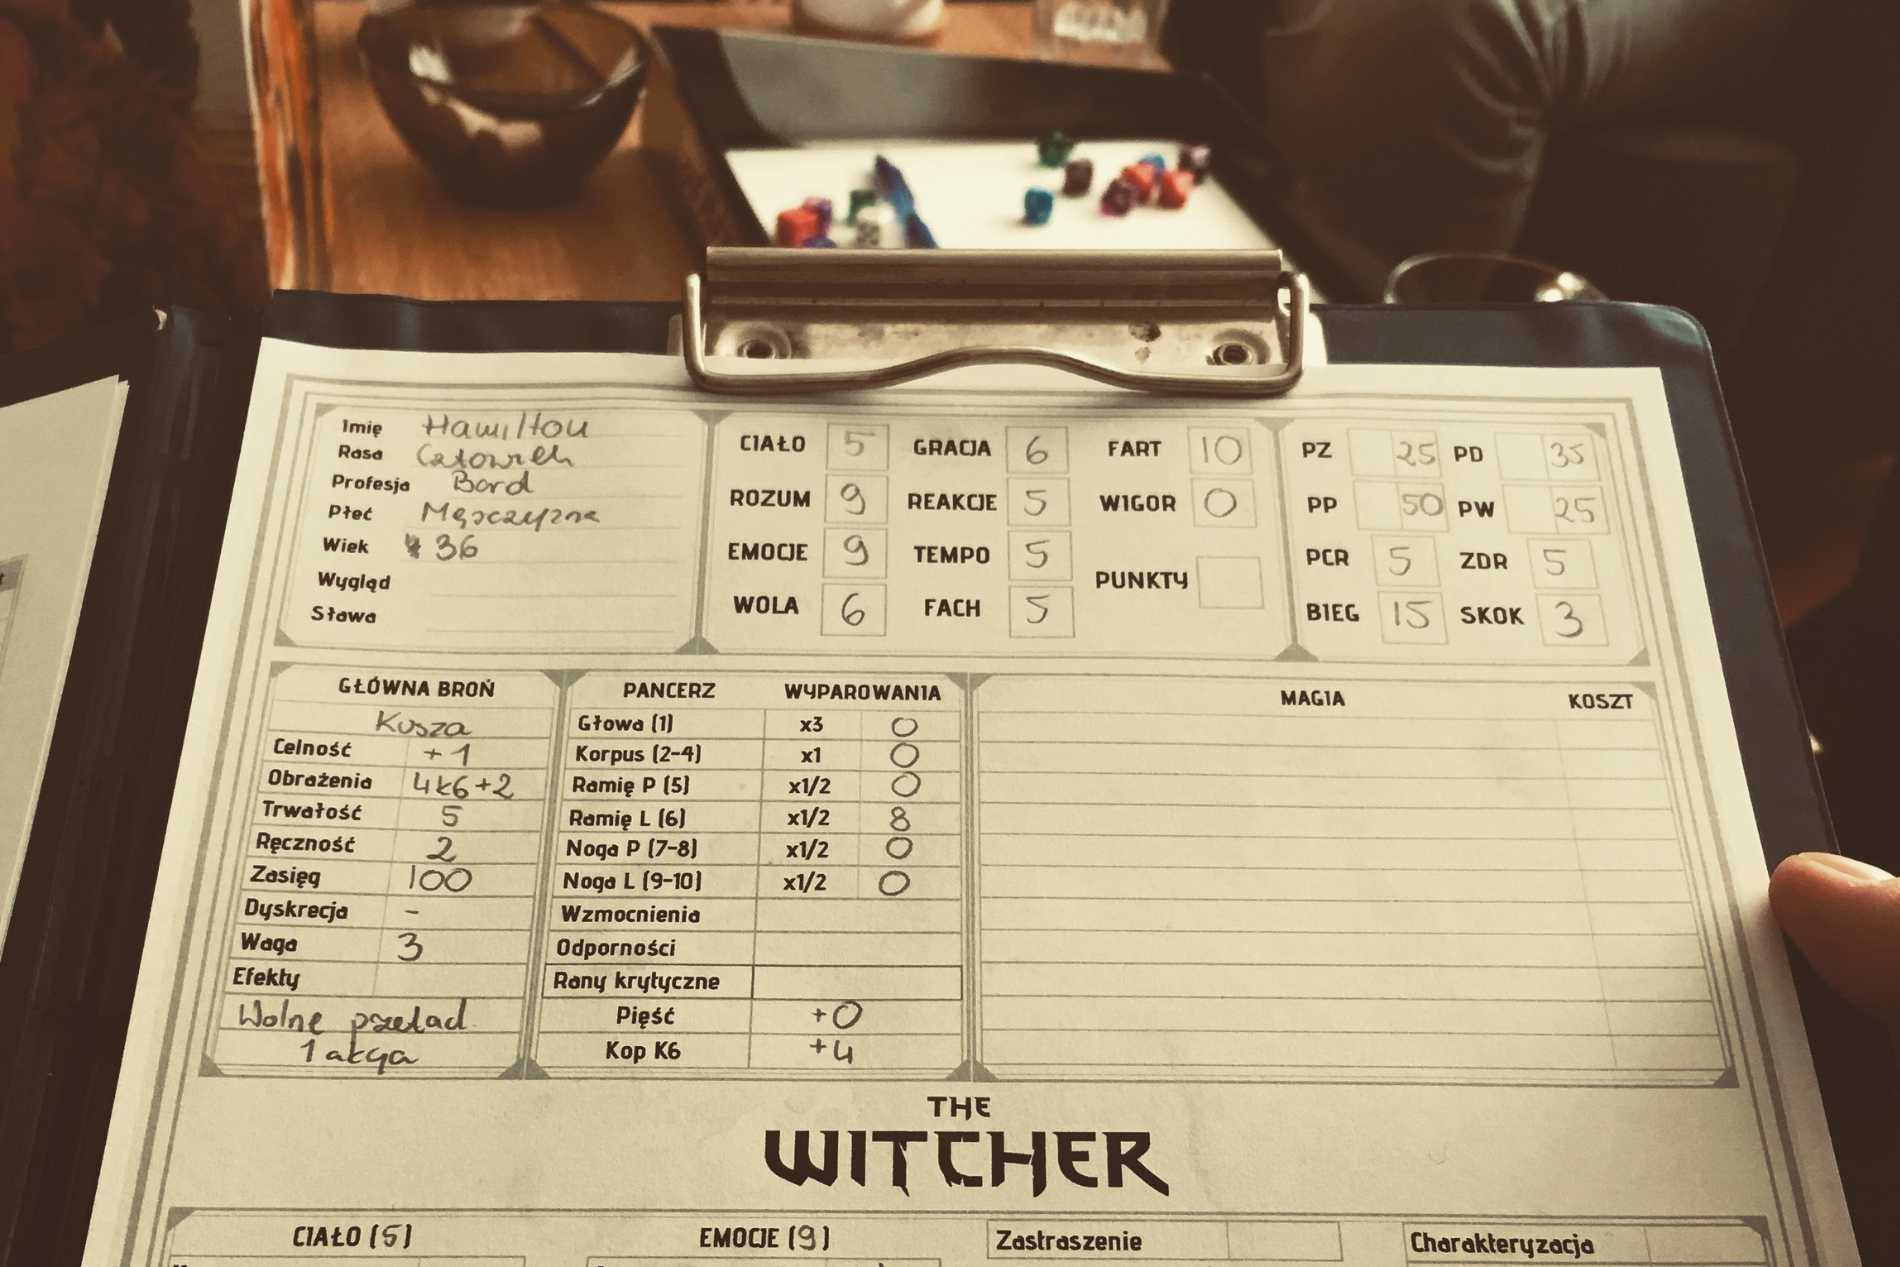 Imię Hamilton
Rasa Człowiek
Profesja Bard
Płeć Mężczyzna
Wiek 36
Wygląd
Sława
CIAŁO 5 GRACJA 6 FART 10
ROZUM 9 REAKCJE 5 WIGOR 0
EMOCJE 9 TEMPO 5 PUNKTY
WOLA 6 FACH 5
PZ 25 PD 35
PP 50 PW 25
PCR 5 ZDR 5
BIEG 15 SKOK 3
GŁÓWNA BROŃ
Kusza
Celność +1
Obrażenia 4k6+2
Trwałość 5
Ręczność 2
Zasięg 100
Dyskrecja -
Waga 3
Efekty
Wolne przeład.
1 akcja
PANCERZ WYPAROWANIA
Głowa (1) x3 0
Korpus (2-4) x1 0
Ramię P (5) x1/2 0
Ramię L (6) x1/2 8
Noga P (7-8) x1/2 0
Noga L (9-10) x1/2 0
Wzmocnienia
Odporności
Rany krytyczne
Pięść +0
Kop K6 +4
MAGIA KOSZT
THE
WITCHER
CIAŁO (5) EMOCJE (9) Zastraszenie Charakteryzacja